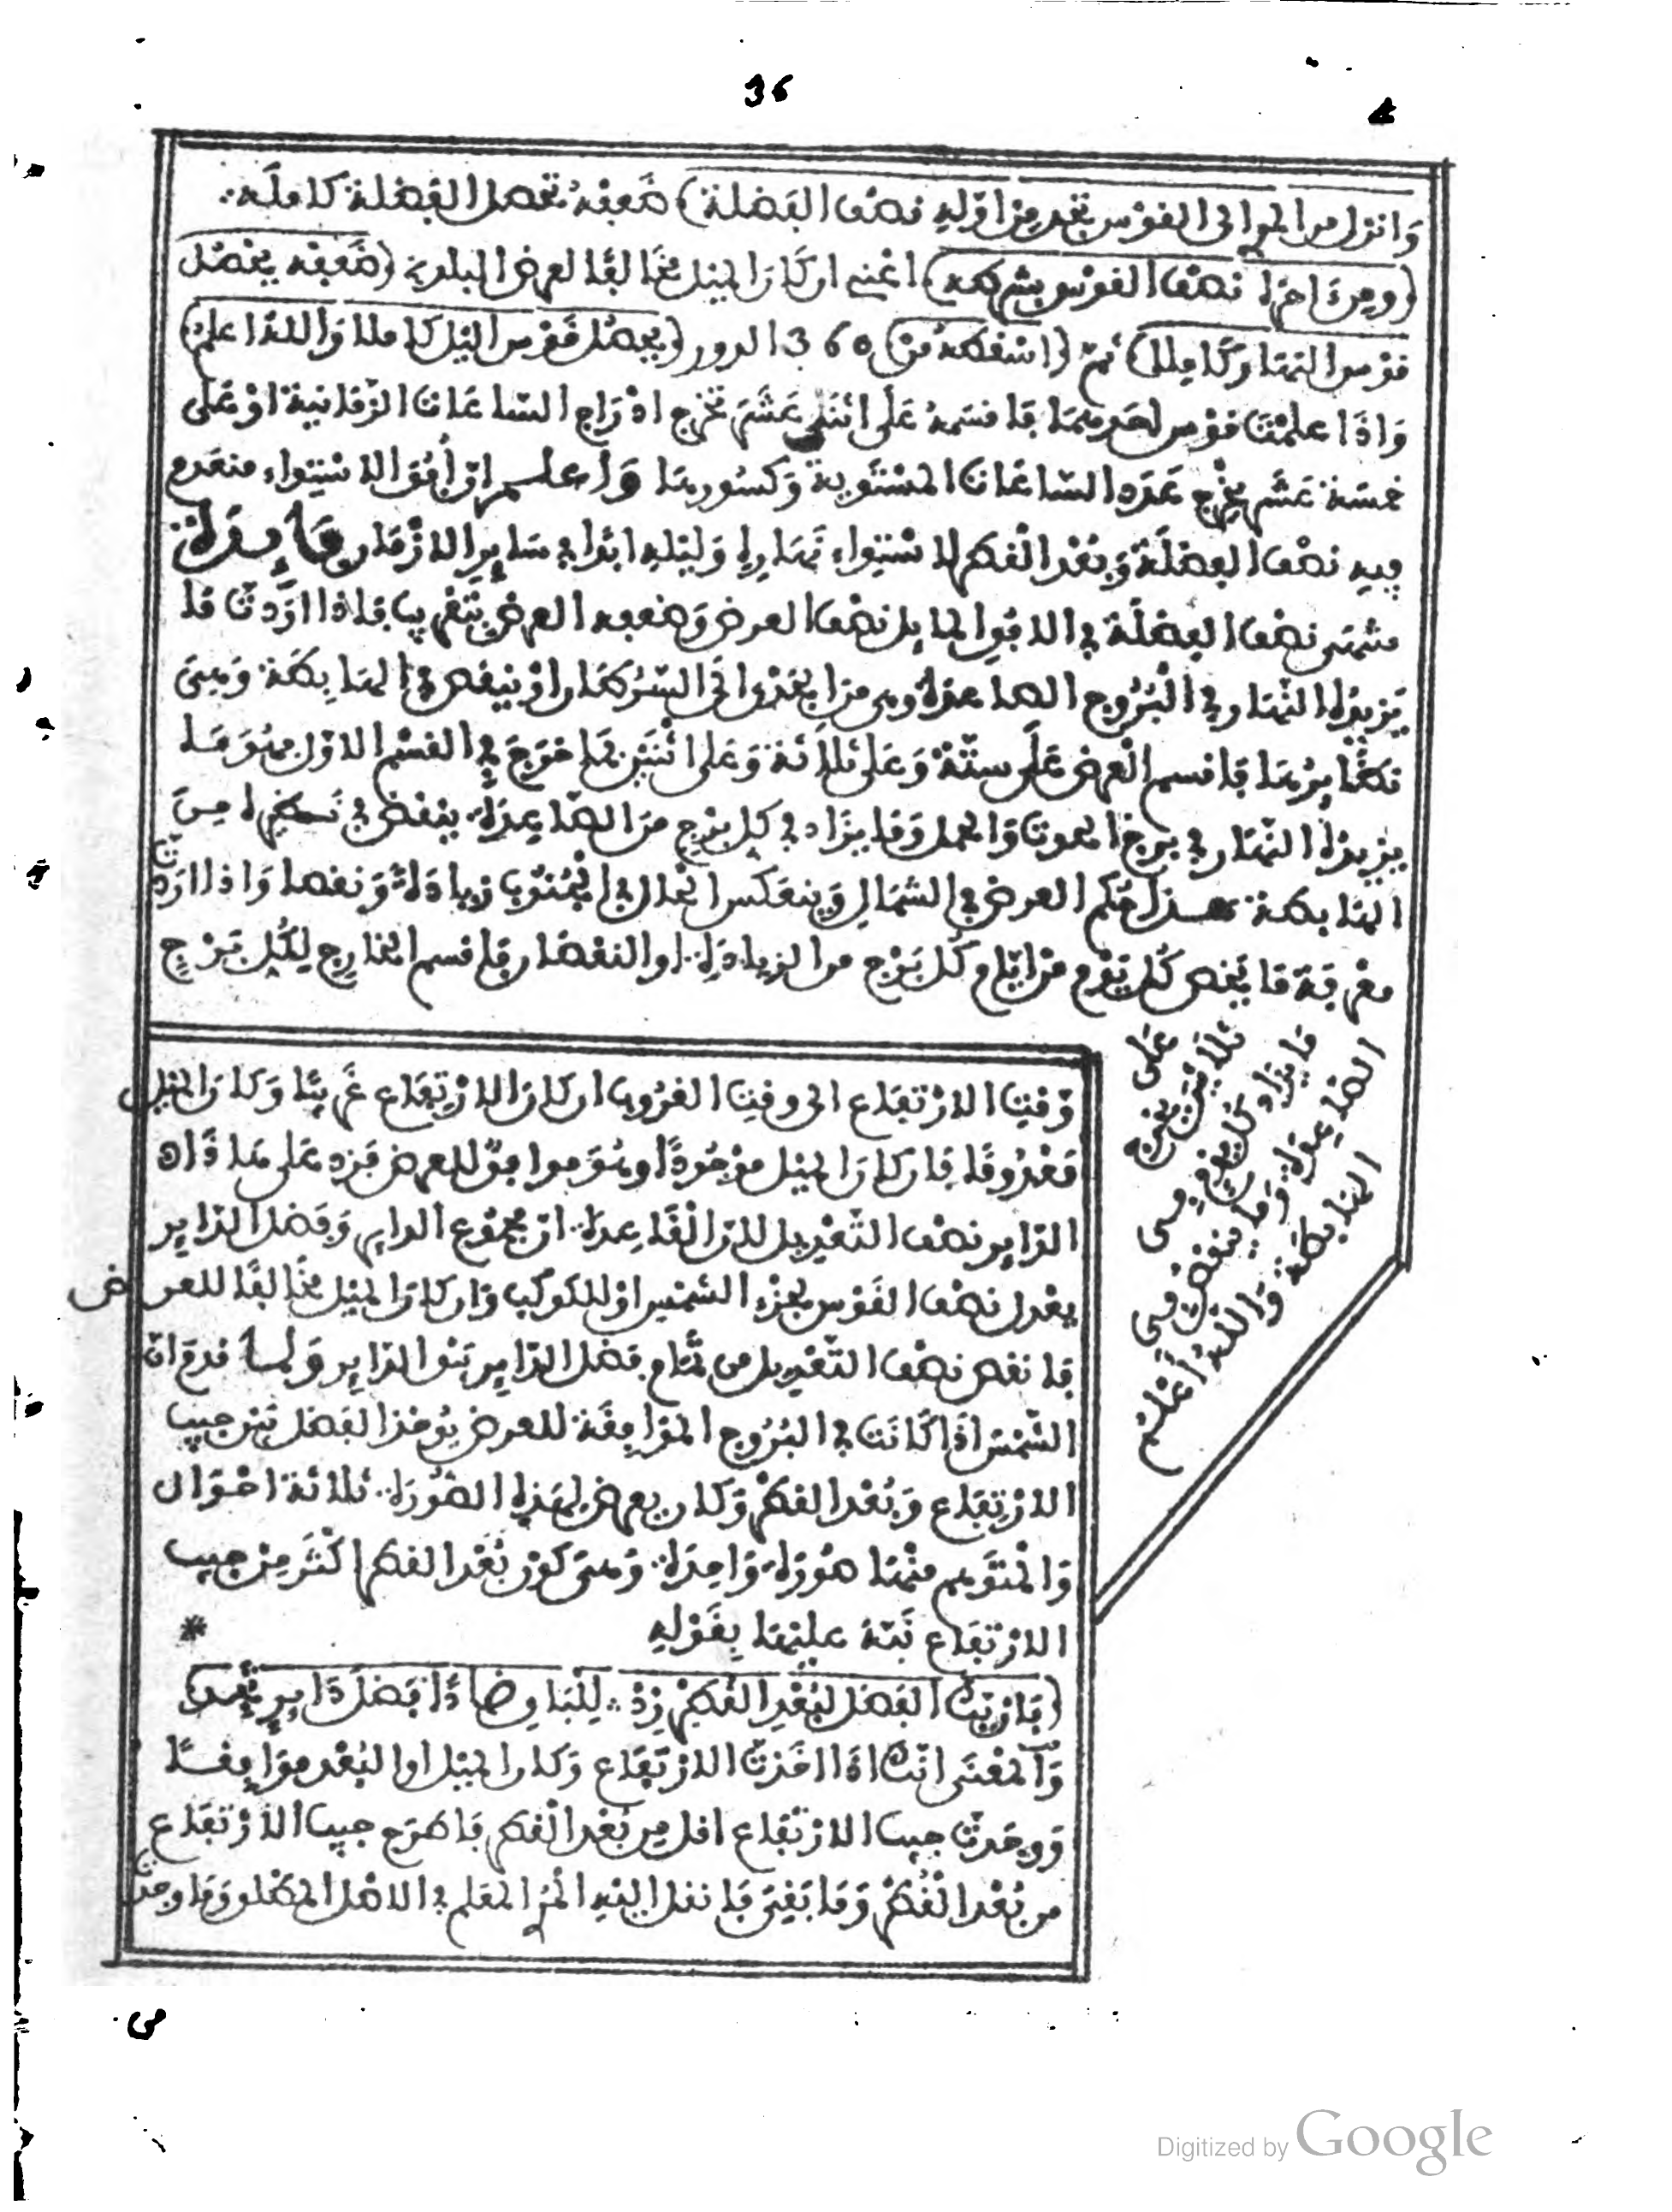 36
وَانزل من الجوا الى الفوْس تجد مِن اوّلِه نصْف البَضلة) ضَعفْهُ تحصل البَضلة كاملَه
(ومِن ذا حرا نصْف الفوْس بشرطه) اعْني ان كَانَ الميْل مخَالفًا لعرض البلد (ضَعفْه يحْصل
قوْس النهَار كَاملا) ثمّ (اسْقطهُ مِنْ) 360 الدور (يحصُل قَوْس اليْل كاملا وَاللهُ اعلم)
وَاذَا علمْتَ قوْس احَدِهمَا فاقسمهُ عَلى اثنَىْ عَشَر تخرُج ادْرَاج السّاعَات الزّمَانية اوْ عَلى
خمسَة عَشر يخْرج عَدَد السّاعَات المسْتَوية وَكسُورهمَا وَاعلم انّ أُفق الاسْتِواء منعَدم
فيه نصْف البضلَة وَبُعْد الْقطر لاسْتِواء نَهَارِهِ وَليْلِه ابَدا في سَاير الازْمَان فَايدَة
منتهَى نصْف البضلَة في الافق المايل نصْف العرض وَضعفه العرض بتَقْريب فاذا ارَدتَ مَا
يَزيدُ النّهَار في الْبُرُوج الصاعدَة وهى مِن الجَدْى الى السّرَطَان اوْ يَنقص في الهَابطة وَهىَ
نظَايرُهَا فاقسم الْعرض عَلى ستّة وَعَلى ثلاثَة وَعَلى اثنَيْن فمَا خرَجَ في القسْم الاوّل فهُوَ مَا
يزيدُ النّهَار في برْج الحوت وَالحمل وَمَا يزَاد في كل برْج مِنَ الصَّاعدَة ينقص في نَظيره مِنَ
الهَابطة هَذا حُكم العرض في الشمَال وَينعَكس الحَال في الجَنُوب زيادَة وَنقصا وَاذا ارَدتّ
معْرفَة مَا يَخص كُل يَوْم مِنْ ايّام كُل بَرْج من الزيادَة او النقصَان فاقسم الخارج لكُل بَرْج
عَلى
ثلاثين يخرج
مَا يزاد كل يوْم في
الصاعدَة وَمَا ينقص في
الهَابطة وَاللهُ أعْلم
وَقت الارْتفَاع الى وقت الغرُوب ان كَانَ الارْتفَاع غَرْبيًا وَكانَ الميْل
مَعْرُوفًا فان كَانَ الميْل موْجُودًا وهُوَ موافق للعرض فَزد عَلى مَا زَاد
الدّاير نصْف التّعْديل لانّ الْقَاعدَة انّ مجمُوع الداير وَفَضل الدّاير
يعْدل نصْف القَوْس لجزْء الشمْس اوْ للكوكب وَان كَانَ الميْل مخَالفًا للعرض
فانقص نصْف التّعْديل من تمَام فضل الدّاير يَبْق الدّاير وَلما قدم انّ
الشّمْسَ اذَا كَانَت في البُرُوج المُوَافقَة للعرض يُوخذ البَضل بَيْن جيب
الارْتفَاع وَبُعْد القطر وَكان يعرض لهَذه الصُّورَة ثلاثة احْوَال
وَالْمتَوهم منْهَا صُورَة وَاحدَة وَهىَ كوْن بُعْد القطر اكْثَر مِنْ جيب
الارْتفَاع نَبّهَ عليْهَا بقَوْله *
وَالمعْنَى انّكَ اذَا اخَذْتَ الارْتفَاع وَكان الميْل او البُعْد موَافِقًا
وَوجَدتّ جيب الارْتفَاع اقل مِن بُعْد القطر فَاطرَح جيب الارْتفَاع
من بُعْد الْقُطر وَمَا بَقىَ فانقل اليْه المُرى المعَلم في الاصْل المطْلَق وَمَا وجدتّ
من
Digitized by Google